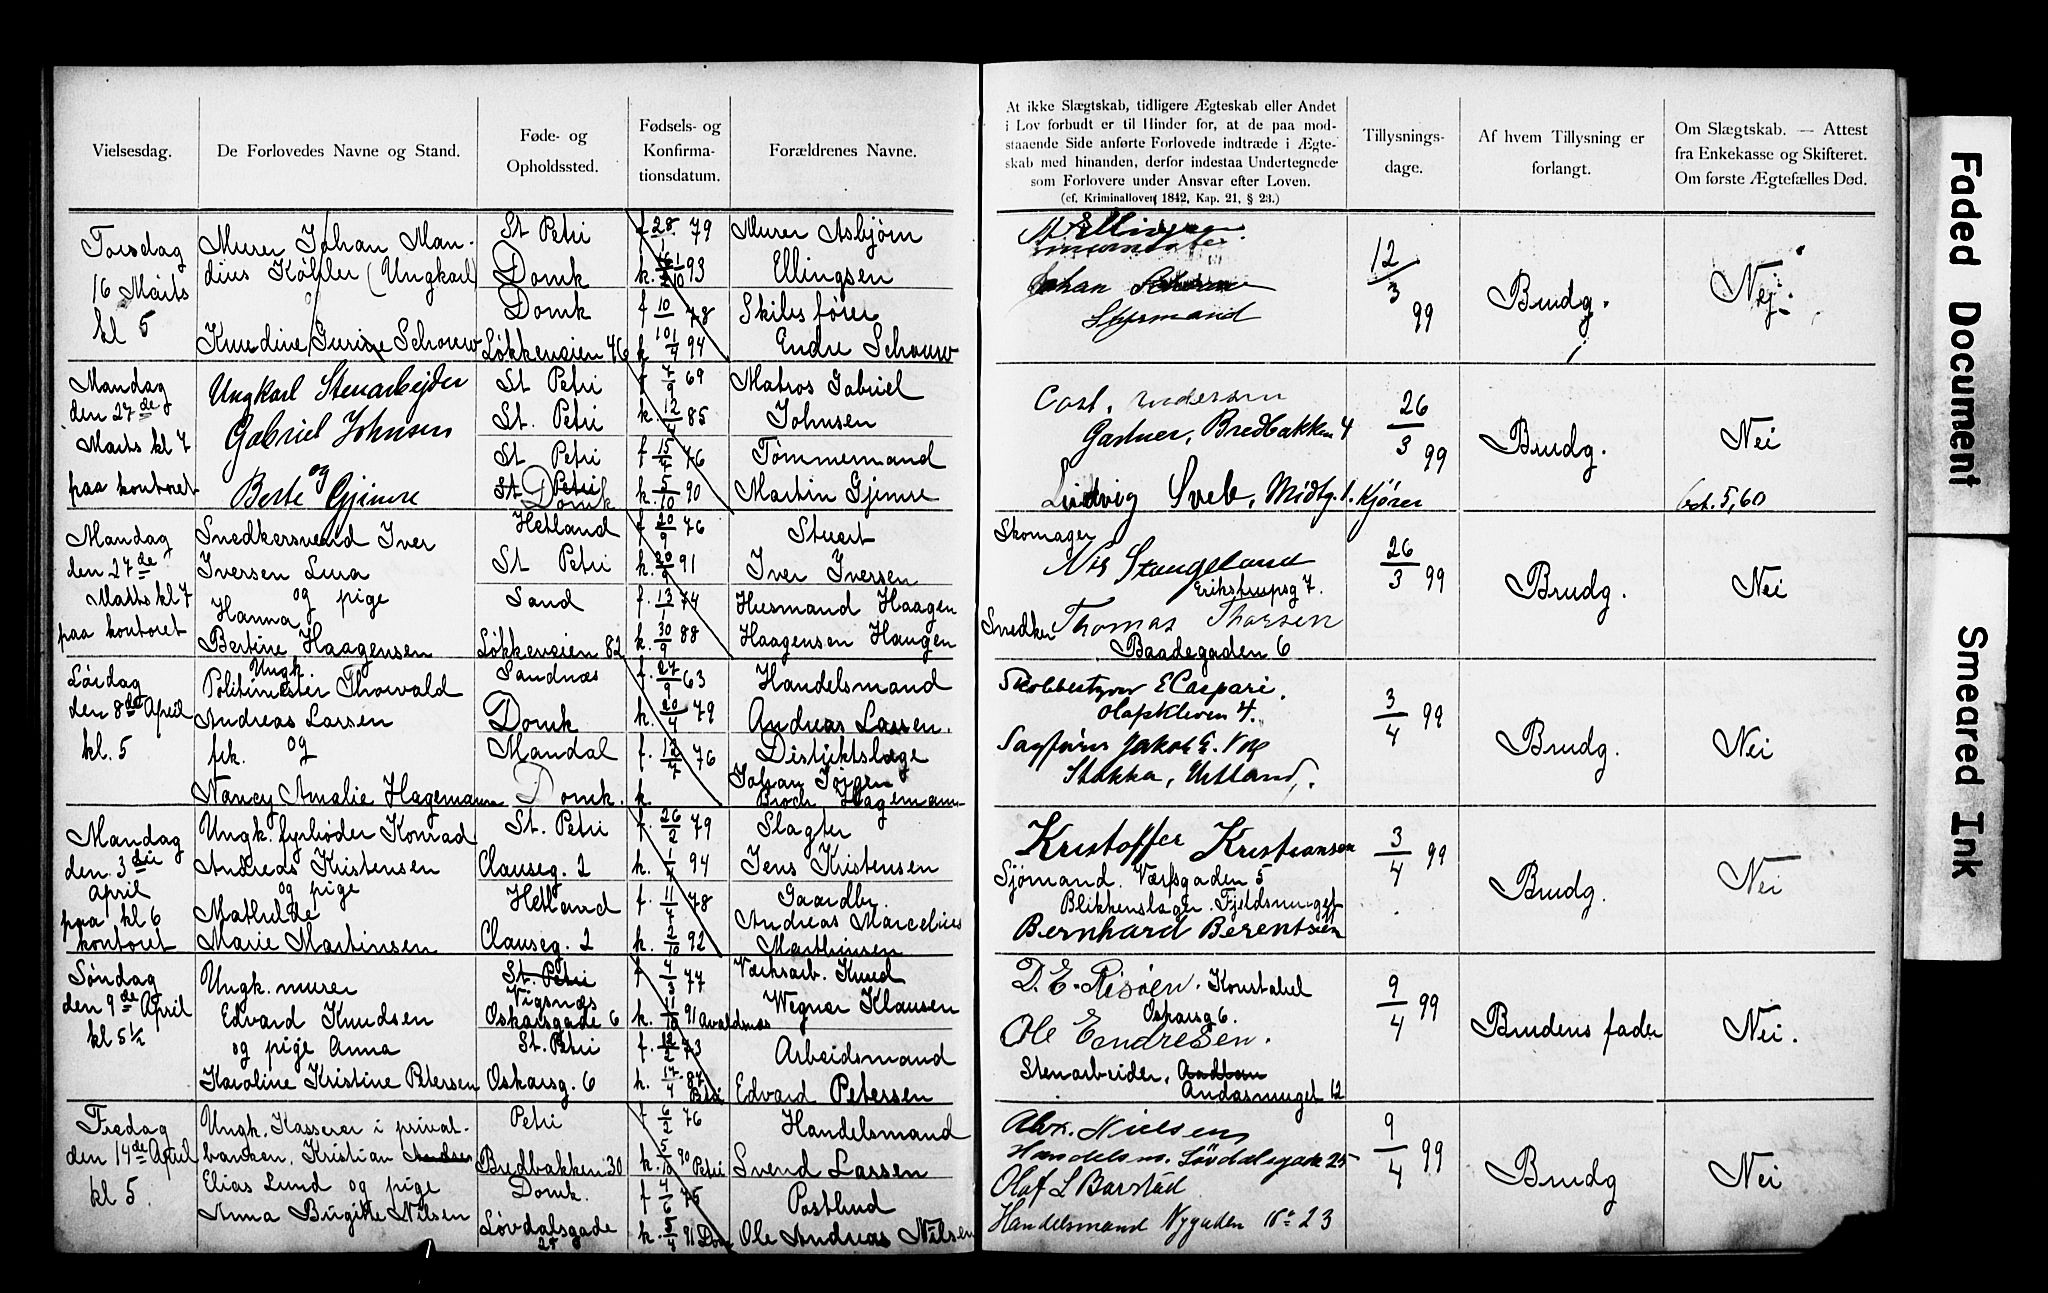 Vielsesdag.
De Forlovedes Navne og Stand.
Føde- og
Opholdssted.
Fødsels- og
Konfirma-
tionsdatum.
Forældrenes Navne.
At ikke Slægtskab, tidligere Ægteskab eller Andet
i Lov forbudt er til Hinder for, at de paa mod-
staaende Side anførte Forlovede indtræde i Ægte-
skab med hinanden, derfor indestaa Undertegnede
som Forlovere under Ansvar efter Loven.
(cf. Kriminalloven 1842, Kap. 21, § 23.)
Tillysnings-
dage.
Af hvem Tillysning er
forlangt.
Om Slægtskab. — Attest
fra Enkekasse og Skifteret.
Om første Ægtefælles Død.
Torsdag
16 Marts
kl 5
Murer Johan Man-
dius Köhler (Ungkarl)
Knudine Gurine Schouw
St Petri
Domk
Domk
Løkkeveien 46
f 28/1 79
k. 93
f 10/1 78
k 94
Murer Asbjørn
Ellingsen
Skibsfører
Endre Schouw
Johan
Styrmand
12/3 99
Brudg.
Nej.
Mandag
den 27de
Marts kl 7
paa kontoret
Ungkarl Stenarbejder
Gabriel Johnsen
og
Berte Gjimre
St Petri
St. Petri
St Petri
St Petri
Domk
f 7/9 69
k. 12/4 85
f 15/4 76
k. 5/10 90
Matros Gabriel
Johnsen
Tømmermand
Martin Gjimre
Carl. Andersen
Gartner, Bredbakken 4
Ludvig Sveb, Midtg. 1. Kjører
26/3 99
Brudg.
Nei
bet. 5,60
Mandag
den 27de
Marts kl 7
paa kontoret
Snedkersvend Iver
Iversen Lura
og pige
Hanna
Bertine Haagensen
Hetland
St Petri
Sand
Løkkeveien 82
f 20/9 76
k. 20/9 91
f. 13/1 74
k. 30/9 88
Stuert
Iver Iversen
Husmand Haagen
Haagensen Haugen
Skomager
Nils Stangeland
Erikstrupsg 7.
Snedker Thomas Thorsen
Baadegaden 6
26/3 99
Brudg.
Nei
Lørdag
den 8de April
kl. 5
Ungk.
Politimester Thorvald
Andreas Larsen
frk. og
Nancy Amalie Hagemann
Sandnæs
Domk
Mandal
Domk.
f. 27/9 63
k. 20/4 79
f. 12/7 76
k.
Handelsmand
Andreas Larsen.
Distriktslæge
Johan Jörgen
Broch Hagemann
E Caspari.
Olafskleven 4.
Sagfører Jakob E.
Stokka, Hetland,
3/4 99
Brudg.
Nei
Mandag
den 3die
April
paa kl 6
kontoret
Ungk. fyrbøder Konrad
Andreas Kristensen
og pige
Mathilde
Marie Martinsen
St. Petri
Clauseg. 2
Hetland
Clauseg. 2
f. 26/2 79
k. 1/4 94
f. 11/4 78
k. 2/10 92
Slagter
Jens Kristensen
Gaardbr.
Andreas Marcelius
Marthinsen
Kristoffer Kristiansen
Sjømand. Værfsgaden 5
Blikkenslager. Fjeldsmuget
Bernhard Berentsen
3/4 99
Brudg.
Nei
Søndag
den 9de April
kl 5½
Ungk. murer
Edvard Knudsen
og pige Anna
Karoline Kristine Petersen
St. Petri
Vigsnæs
Oskarsgade 6
St. Petri
Oskarsg. 6
f 4/3 77
k. 11/10 91 Avaldsnæs
f. 12/2 73
k. 17/4 87 Petri
Værksarb. Knud
Wegner Klausen
Arbeidsmand
Edvard Petersen
D. E. Risøen. Konstabel
Oskarsg 6.
Ole Endresen.
Stenarbeider,
Andasmuget 12
9/4 99
Brudens fader
Nei.
Fredag
den 14de April
kl 5.
Ungk. Kasserer i privat-
banken, Kristian
Elias Lund og pige
Anna Birgitte Nilsen
Petri
Bredbakken 30
Domk.
Løvdalsgade
25
f 6/2 76
k. 5/10 90 Petri
f 4/6 75
k. 5/4 91 Dom
Handelsmand
Svend Larsen
Postbud
Ole Andreas Nilsen
Alex. Nielsen
Handelsm. Løvdalsgade 25
Olaf L Barstad
Handelsmand Nygaden No 23
9/4 99
Brudg
Nei
Faded Document
Smeared Ink